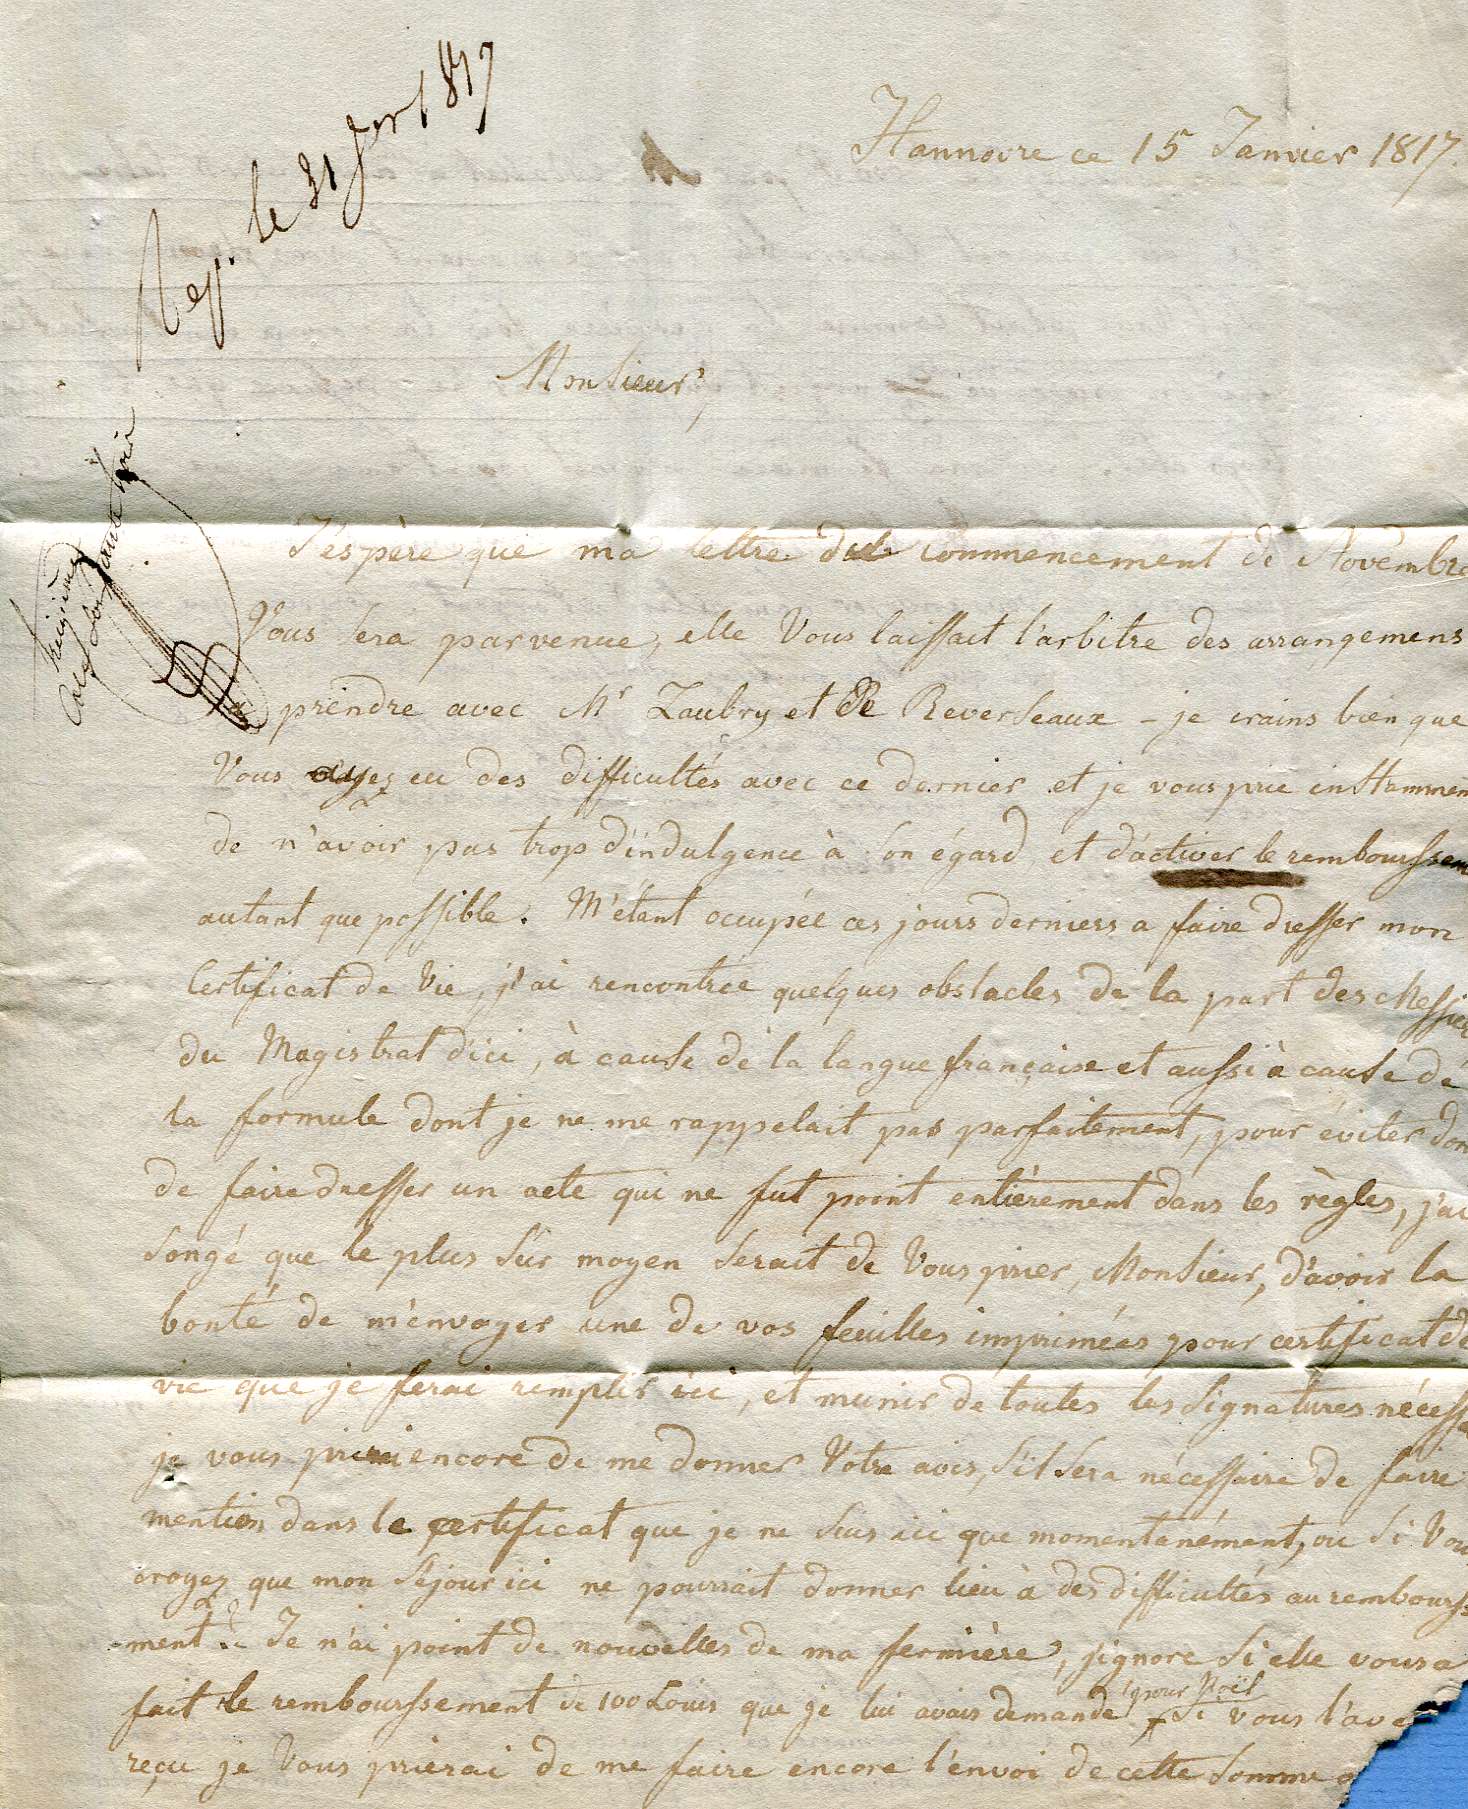 Rep. le 31 Jer 1817
Hannovre ce 15 Janvier 1817.
Monsieur,
J'espère que ma lettre du commencement de Novembre
Vous sera parvenue, elle Vous laissait l'arbitre des arrangemens
à prendre avec Mr Zaubry et De Reverseaux - je crains bien que
Vous ayez eu des difficultés avec ce dernier et je vous prie instammen
de n'avoir pas trop d'indulgence à son égard et d'activer le remboursse
autant que possible. M'étant occupée ces jours derniers a faire dresser mon
Certificat de Vie, j'ai rencontrée quelques obstacles de la part des Messieu
du Magistrat d'ici, à cause de la langue française et aussi à cause de
la formule dont je ne me rappelait pas parfaitement, pour éviter don
de faire dresser un acte qui ne fut point entièrement dans les règles, j'ai
songé que le plus sûr moyen serait de Vous prier, Monsieur, d'avoir la
bonté de m'envoyer une de vos feuilles imprimées pour certificat de
vie que je ferai remplir ici, et munir de toutes les signatures nécess
je vous prierai encore de me donner Votre avis, s'il sera nécessaire de faire
mention dans le certificat que je ne suis ici que momentanément, ou si Vou
croyez que mon séjour ici ne pourrait donner lieu à des difficultés au rembourss
ment? Je n'ai point de nouvelles de ma fermière, j'ignore si elle vous a
fait le rembourssement de 100 Louis que je lui avais demandé pour Noël
Si vous l'ave
reçu je Vous prierai de me faire encore l'envoi de cette somme